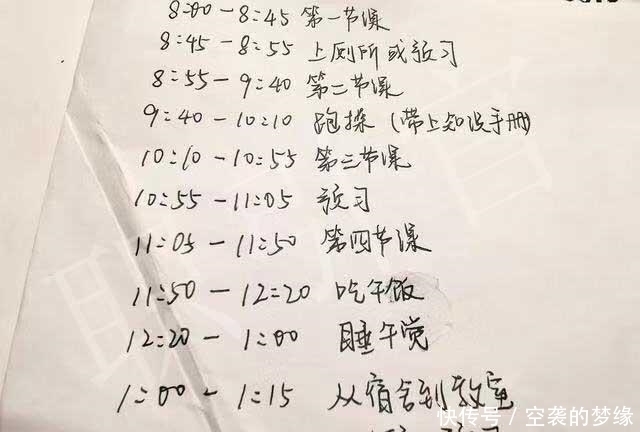 8:00－8:45 第一节课
8:45－8:55 上厕所或预习
8:55－9:40 第二节课
9:40－10:10 跑操（带上知识手册）
10:10－10:55 第三节课
10:55－11:05 预习
11:05－11:50 第四节课
11:50－12:20 吃午饭
12:20－1:00 睡午觉
1:00－1:15 从宿舍到教室
快传号 / 空袭的梦缘